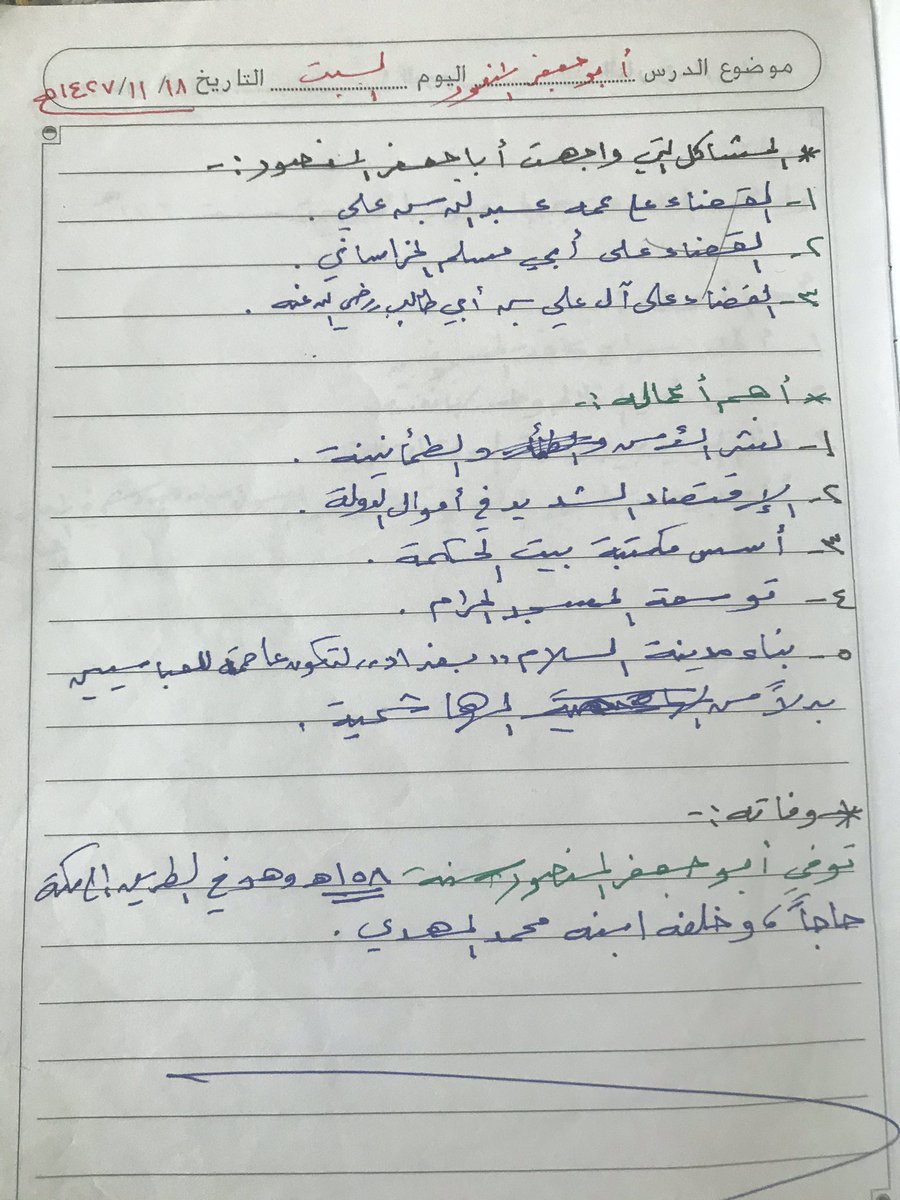 موضوع الدرس أبو جعفر المنصور اليوم السبت التاريخ ١٨/ ١١/ ١٤٢٧هـ
* المشاكل التي واجهت أبا جعفر المنصور :-
١- القضاء على عمه عبد الله بن علي .
٢- القضاء على أبي مسلم الخراساني .
٣- القضاء على آل علي بن أبي طالب رضي الله عنه .
* أهم أعماله :-
١- لنشر الأمن والطمأنينة .
٢- الإقتصاد الشديد في أموال الدولة .
٣- أسس مكتبة بيت الحكمة .
٤- توسعة المسجد الحرام .
٥- بناء مدينة السلام ,, بغداد ,, لتكون عاصمة للعباسيين
بدلاً من الهاشمية .
* وفاته :-
توفي أبو جعفر المنصور سنة ١٥٨هـ وهو في الطريق إلى مكة
حاجاً ، وخلفه ابنه محمد المهدي .